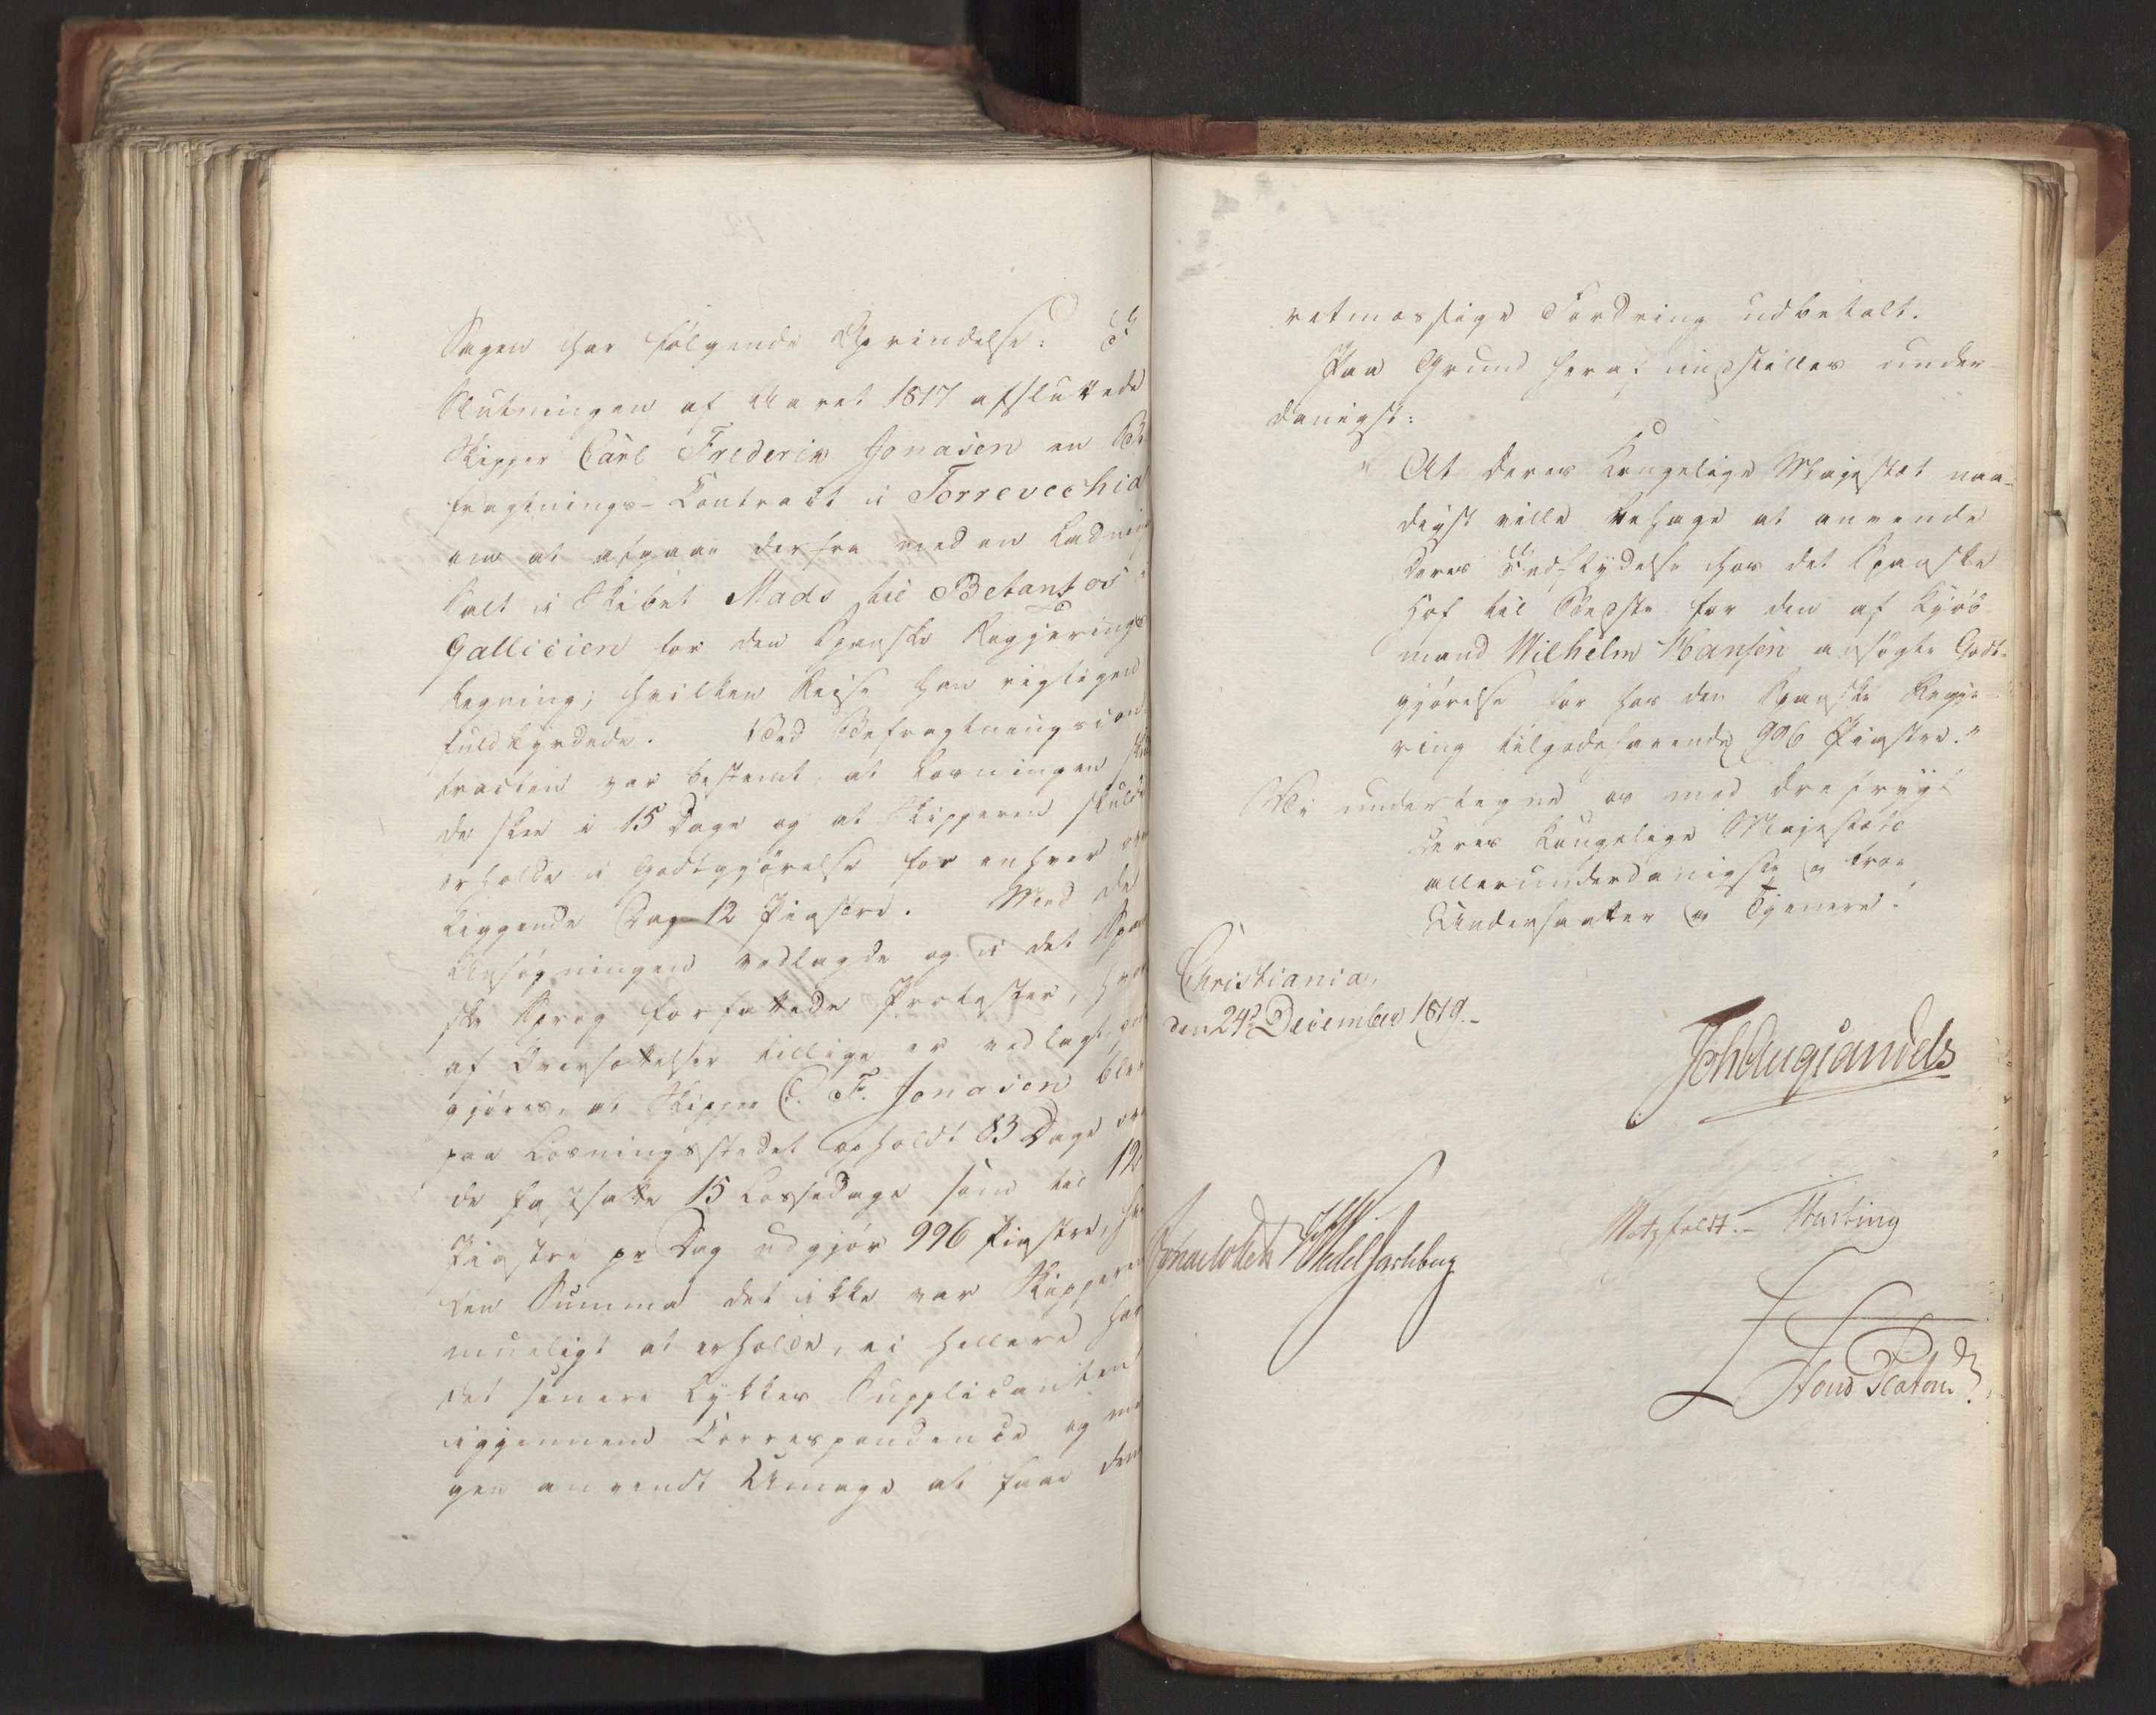 Sagen har følgende Oprindelse: I
Slutningen af Aaret 1817 afsluttede
Skipper Carl Frederik Jonasen en Be
fragtnings-Contract i Torrevechia
om at afgaae derfra med en Ladning
Salt i Skibet Mads til Betantos i
Gallicien for den Spanske Regjerings
Regning; hvilken Reise han rigtigen
fuldbyrdede. Ved Befragtningscon-
tracten var bestemt, at Losningen skul
de skee i 15 Dage og at Skipperen skulde
erholde i Godtgjørelse for enhver over
liggende Dag 12 Piastre. Med de
Ansøgningen vedlagde og i det Span
ske Sprog forfattede Protester, hvor
af Oversættelser tillige er vedlagt,
gjøres, at Skipper C. F. Jonasen blev
paa Losningsstedet opholdt 83 Dage over
de fastsatte 15 Lossedage som til 12
Piastre pr Dag udgjør 996 Piastre, hvil
ken Summa det ikke var Skipperen
mueligt at erholde, ei hellere har
det senere lykkes Supplicanten
igjennem Correspondence og me
gen anvendt Umage at faae den
retmæssige Fordring udbetalt.
Paa Grund heraf indstilles under
danigst:
"At Deres Kongelige Majestæt naa-
digst ville behage at anvende
Deres Indflydelse hos det Spanske
Hof til Bedste for den af Kjøb
mand Wilhelm Hansen ansøgte Godt-
gjørelse for hos den Spanske Regje-
ring tilgodehavende 996 Piastre."
Vi undertegne os med Ærefrygt
Deres Kongelige Majestæts
allerunderdanigste og troe
Undersaatter og Tjenere.
Christiania,
den 24de December 1819.-
Joh Aug Sandels
Motzfeldt.- Hartung
Jonas Collett Wedel Jarlsberg